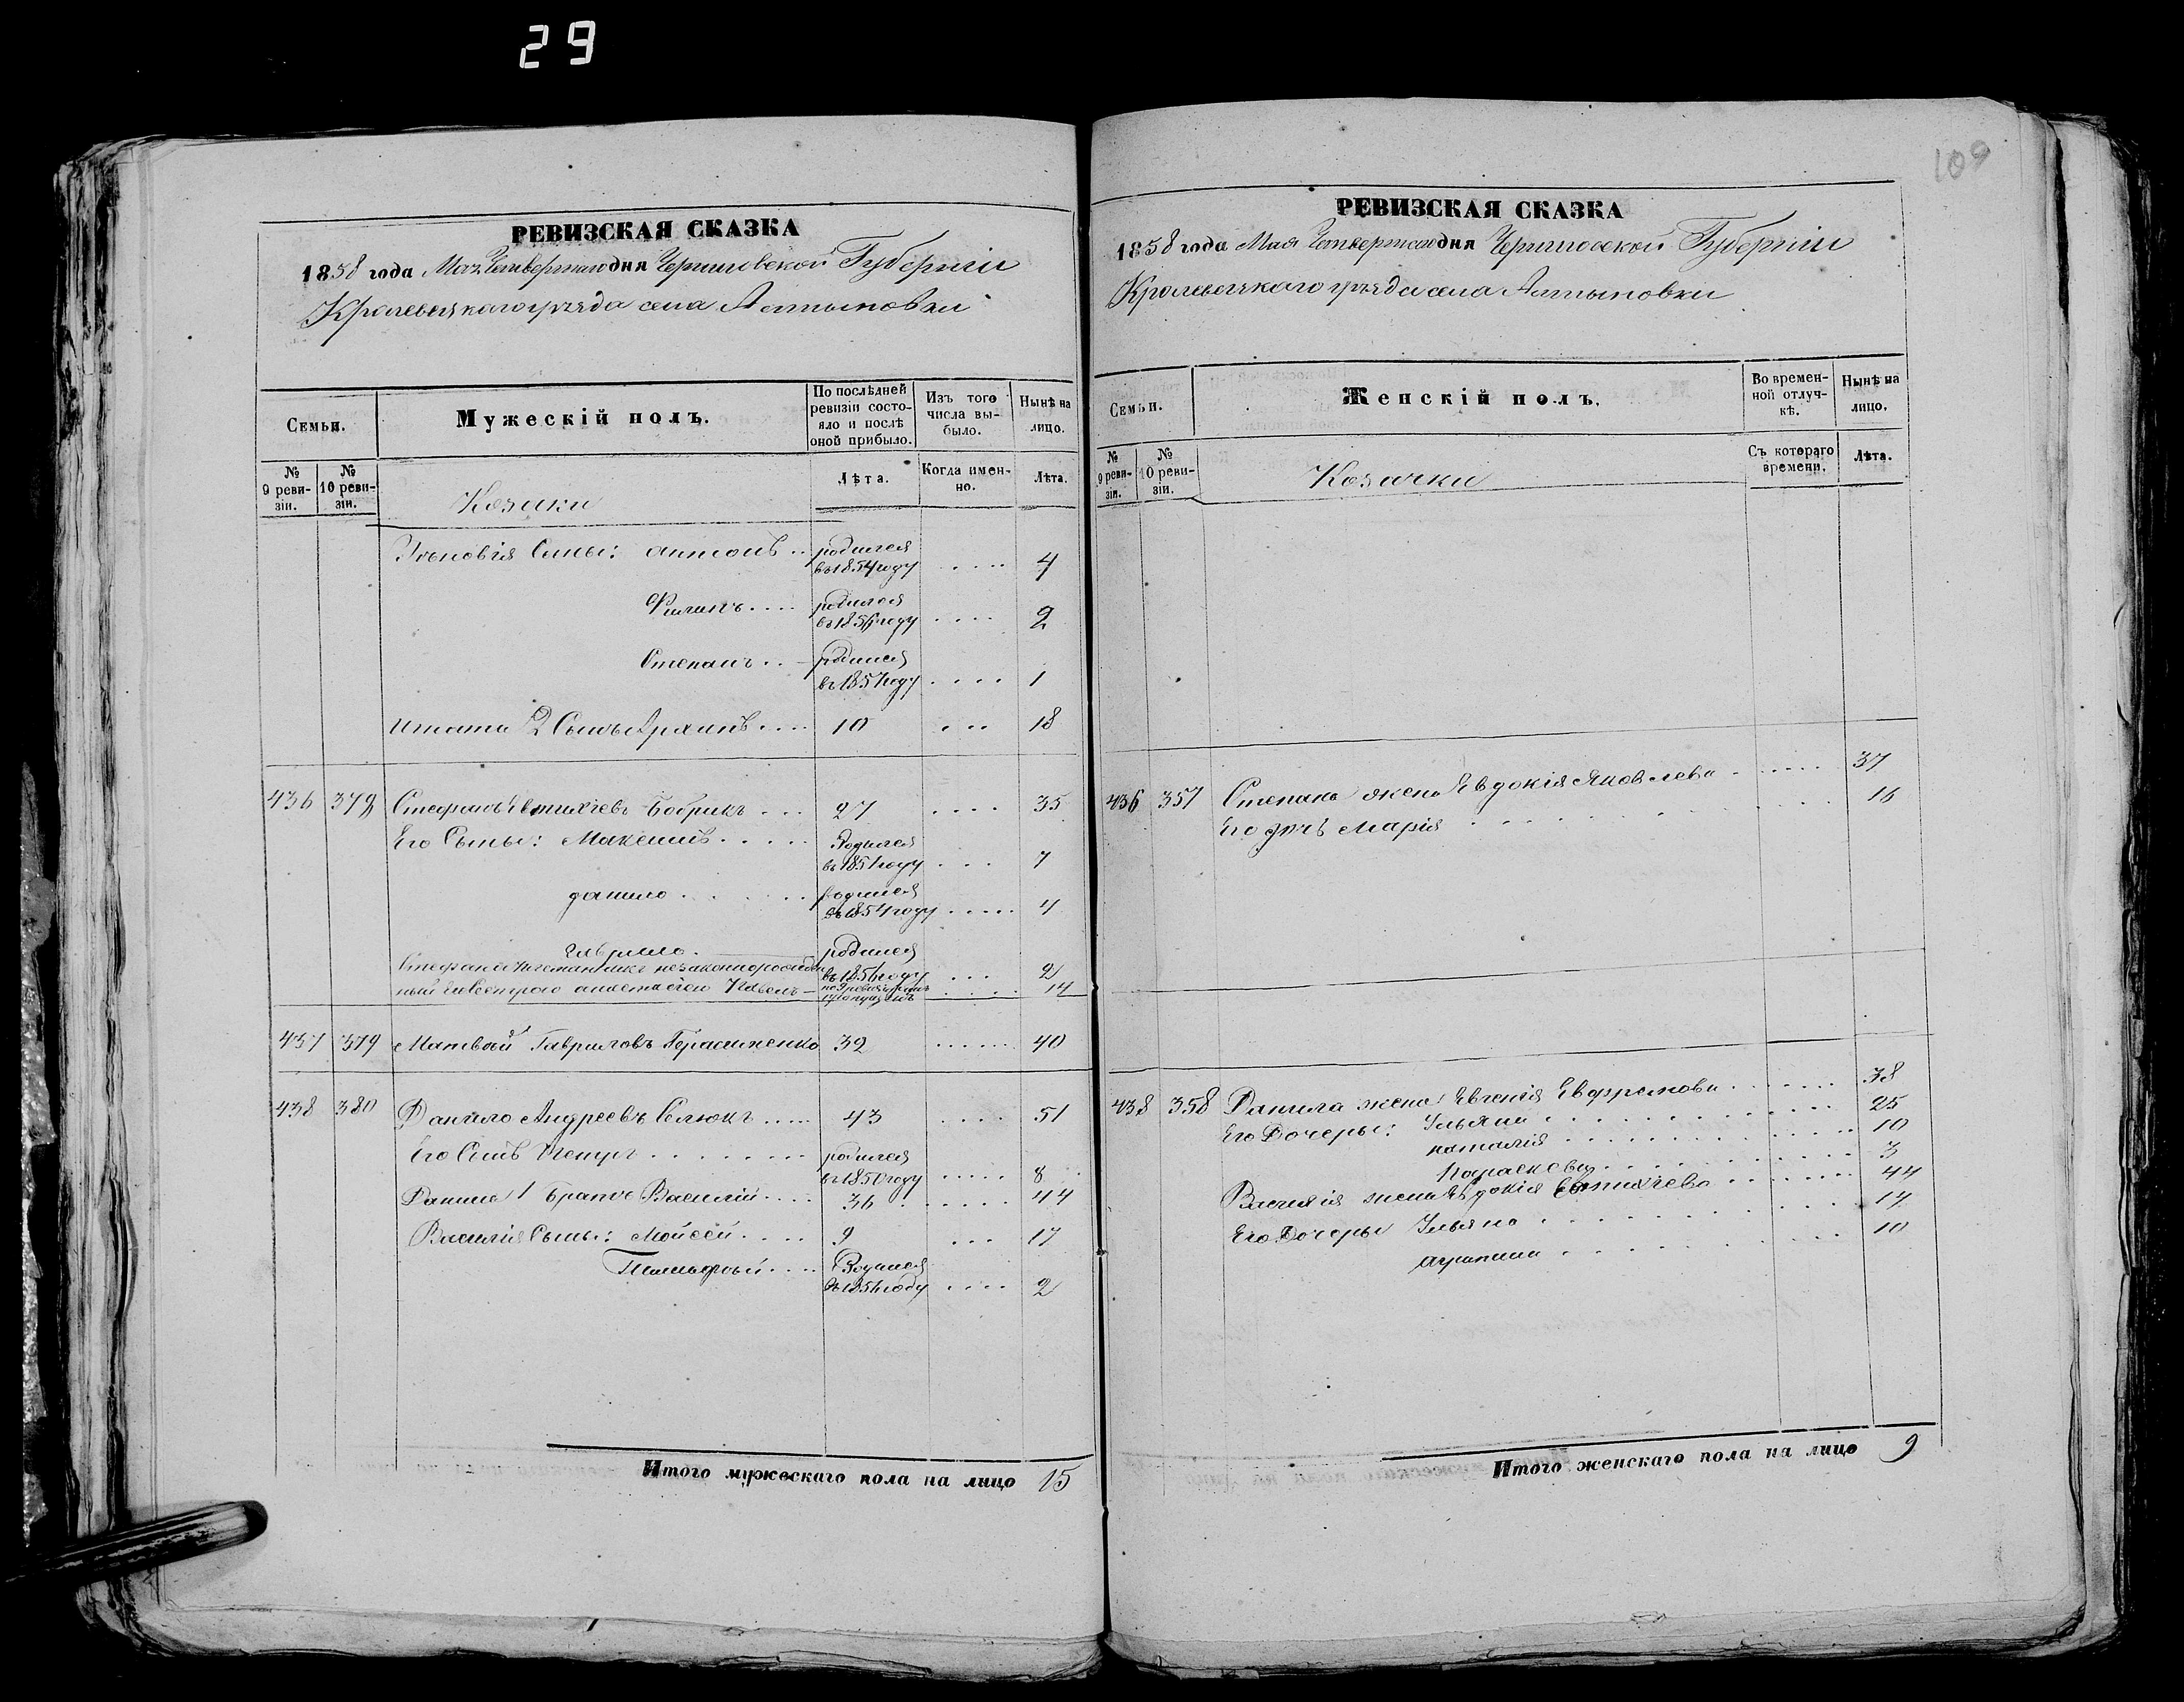 29
РЕВИЗСКАЯ СКАЗКА
1858 года Мая Четвертаго дня Черниговской Губерніи
Кролевецкаго уѣзда села Алтыновки
Семьи.
Мужескій полъ.
По послѣдней ревизіи состояло и послѣ оной прибыло.
Изъ того числа выбыло.
Нынѣ на лицо.
№ 9 ревизіи.
№ 10 ревизіи.
Козаки
Лѣта.
Когда именно.
Лѣта.
Сыны: Антонъ .. родился
въ 1854 году .... 4
Филипъ .... родился
въ 1856 году .... 2
Степанъ .. родился
въ 1857 году .... 1
2 Сынъ Архипъ .... 10 ... 18
436 378 Стефанъ Евтихіевъ Бобрикъ ... 27 .... 35
Его Сыны: Максимъ ..... Родился
въ 1851 году ... 7
данило ...... родился
въ 1854 году ..... 4
гаврило. родился
Стефана племянникъ незаконнорожден въ 1856 году ... 2
ный Павелъ — по 9 ревизіи пропущенъ .... 14
437 379 Матвѣй Гавриловъ Герасименко 32 ...... 40
438 380 Данило Андреевъ Селюкъ ..... 43 .... 51
Его Сынъ ........ родился
въ 1850 году ..... 8
Данила 1 Братъ Василій .... 36 ...... 44
Василія Сыны: Мойсей .... 9 ... 17
.... Родился
въ 1856 году .... 2
Итого мужескаго пола на лицо 15
109
РЕВИЗСКАЯ СКАЗКА
1858 года Мая Четвертаго дня Черниговской Губерніи
Кролевецкаго уѣзда села Алтыновки
Семьи.
Женскій полъ.
Во временной отлучкѣ.
Нынѣ на лицо.
№ 9 ревизіи.
№ 10 ревизіи.
Козачки
Съ котораго времени.
Лѣта.
436 357 Степана жена Евдокія Яковлева ...... 37
Его дочь Марія ........ 16
438 358 Данила жена Евгенія Евфремова ....... 38
Его Дочеры: Ульяна ........ 25
наталія ........ 10
Параскевія ........ 3
Василія жена Евдокія Евтихіева ....... 44
Его Дочеры Ульяна ........ 14
агрипина ........ 10
Итого женскаго пола на лицо 9